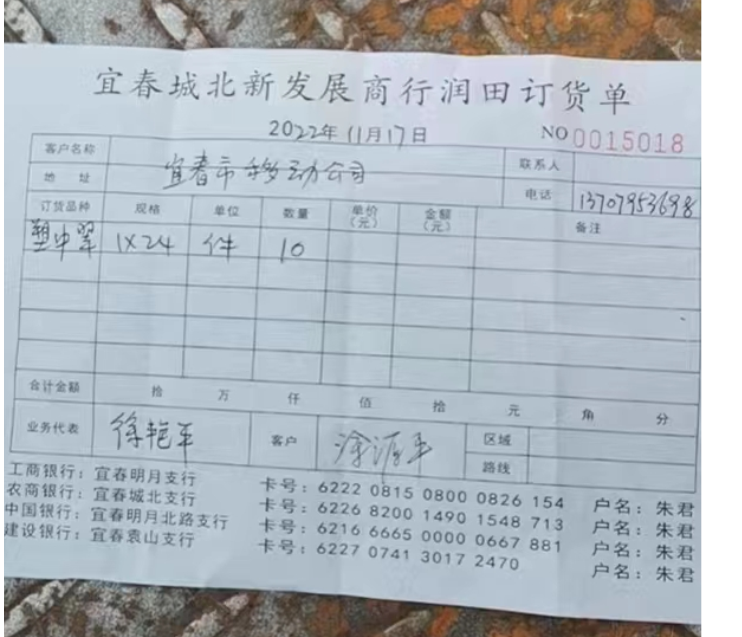 宜春城北新发展商行润田订货单
2022年11月17日 NO 0015018
客户名称 宜春市移动公司 联系人
地址 电话 13707953698
订货品种 规格 单位 数量 单价(元) 金额(元) 备注
塑中翠 1X24 件 10
合计金额 拾 万 仟 佰 拾 元 角 分
业务代表 徐艳平 客户 区域
路线
工商银行：宜春明月支行 卡号：6222 0815 0800 0826 154 户名：朱君
农商银行：宜春城北支行 卡号：6226 8200 1490 1548 713 户名：朱君
中国银行：宜春明月北路支行 卡号：6216 6665 0000 0667 881 户名：朱君
建设银行：宜春袁山支行 卡号：6227 0741 3017 2470 户名：朱君